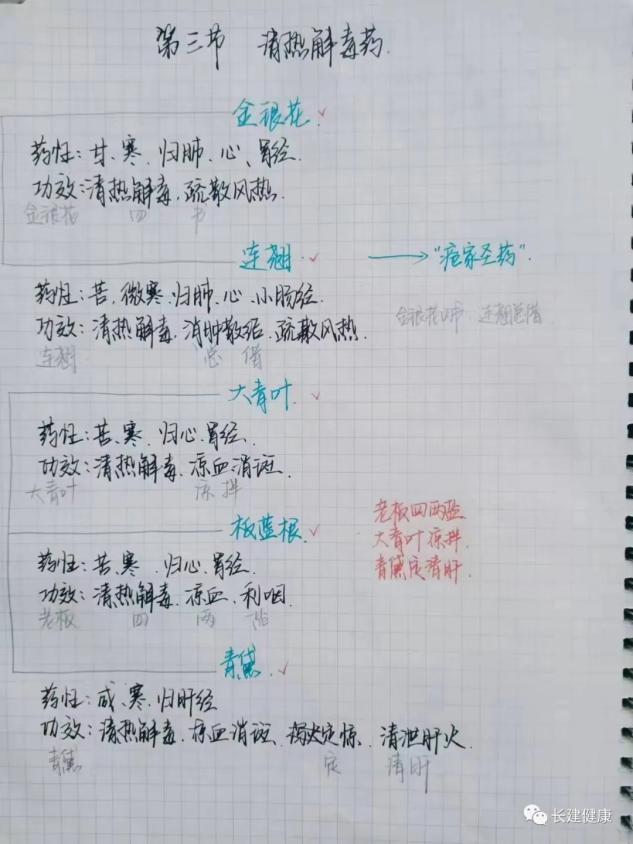 第三节 清热解毒药.
金银花.
药性：甘、寒.归肺、心、胃经.
功效：清热解毒.疏散风热.
金银花 四 书
连翘. → “疮家圣药”.
药性：苦、微寒.归肺、心、小肠经.
功效：清热解毒、消肿散结、疏散风热.
金银花四 连翘总借
连翘 总 借
大青叶.
药性：苦、寒.归心、胃经.
功效：清热解毒、凉血消斑.
大青叶 凉拌
板蓝根.
老板四两
大青叶凉拌
青黛定清肝.
药性：苦、寒.归心、胃经.
功效：清热解毒、凉血、利咽.
老板 四 两
青黛.
药性：咸、寒.归肝经
功效：清热解毒、凉血消斑、泻火定惊、清泄肝火.
青黛 定 清肝
长建健康